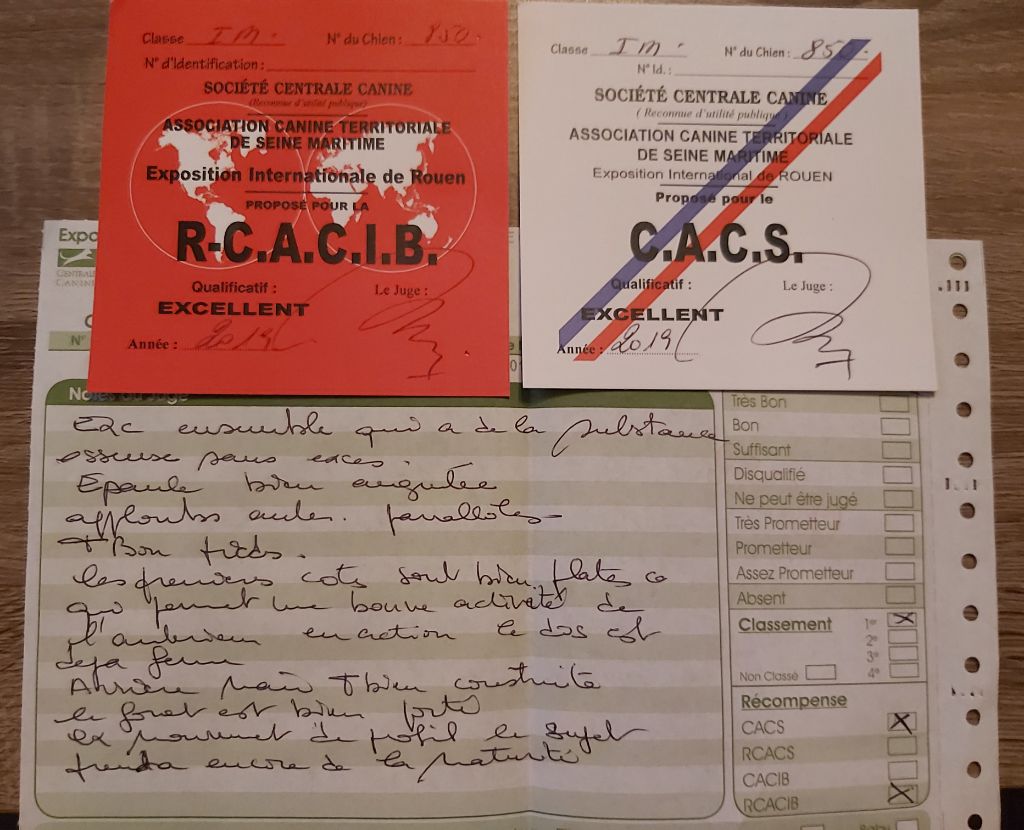 Classe IM. N° du Chien : 850.
N° d'Identification :
SOCIÉTÉ CENTRALE CANINE
(Reconnue d'utilité publique)
ASSOCIATION CANINE TERRITORIALE
DE SEINE MARITIME
Exposition Internationale de Rouen
PROPOSÉ POUR LA
R-C.A.C.I.B.
Qualificatif : Le Juge :
EXCELLENT
Année : 2019
Classe IM. N° du Chien : 850.
N° Id. :
SOCIÉTÉ CENTRALE CANINE
( Reconnue d'utilité publique )
ASSOCIATION CANINE TERRITORIALE
DE SEINE MARITIME
Exposition International de ROUEN
Proposé pour le
C.A.C.S.
Qualificatif : Le Juge :
EXCELLENT
Année : 2019
Expo
CENTRALE
CANINE
N°
Notes du Juge
Exc ensemble qui a de la substance
sans exces.
Epaule bien angulée
paralleles
T Bon pieds.
les premiers cotes sont bien plates ce
qui permet une bonne activité de
l'anterieur en action le dos est
deja ferme
Arrière main T bien construite
le fouet est bien porté
ex mouvement de profil le sujet
prendra encore de la maturité
Très Bon
Bon
Suffisant
Disqualifié
Ne peut être jugé
Très Prometteur
Prometteur
Assez Prometteur
Absent
Classement 1er X
2e
3e
Non Classé 4e
Récompense
CACS X
RCACS
CACIB
RCACIB X